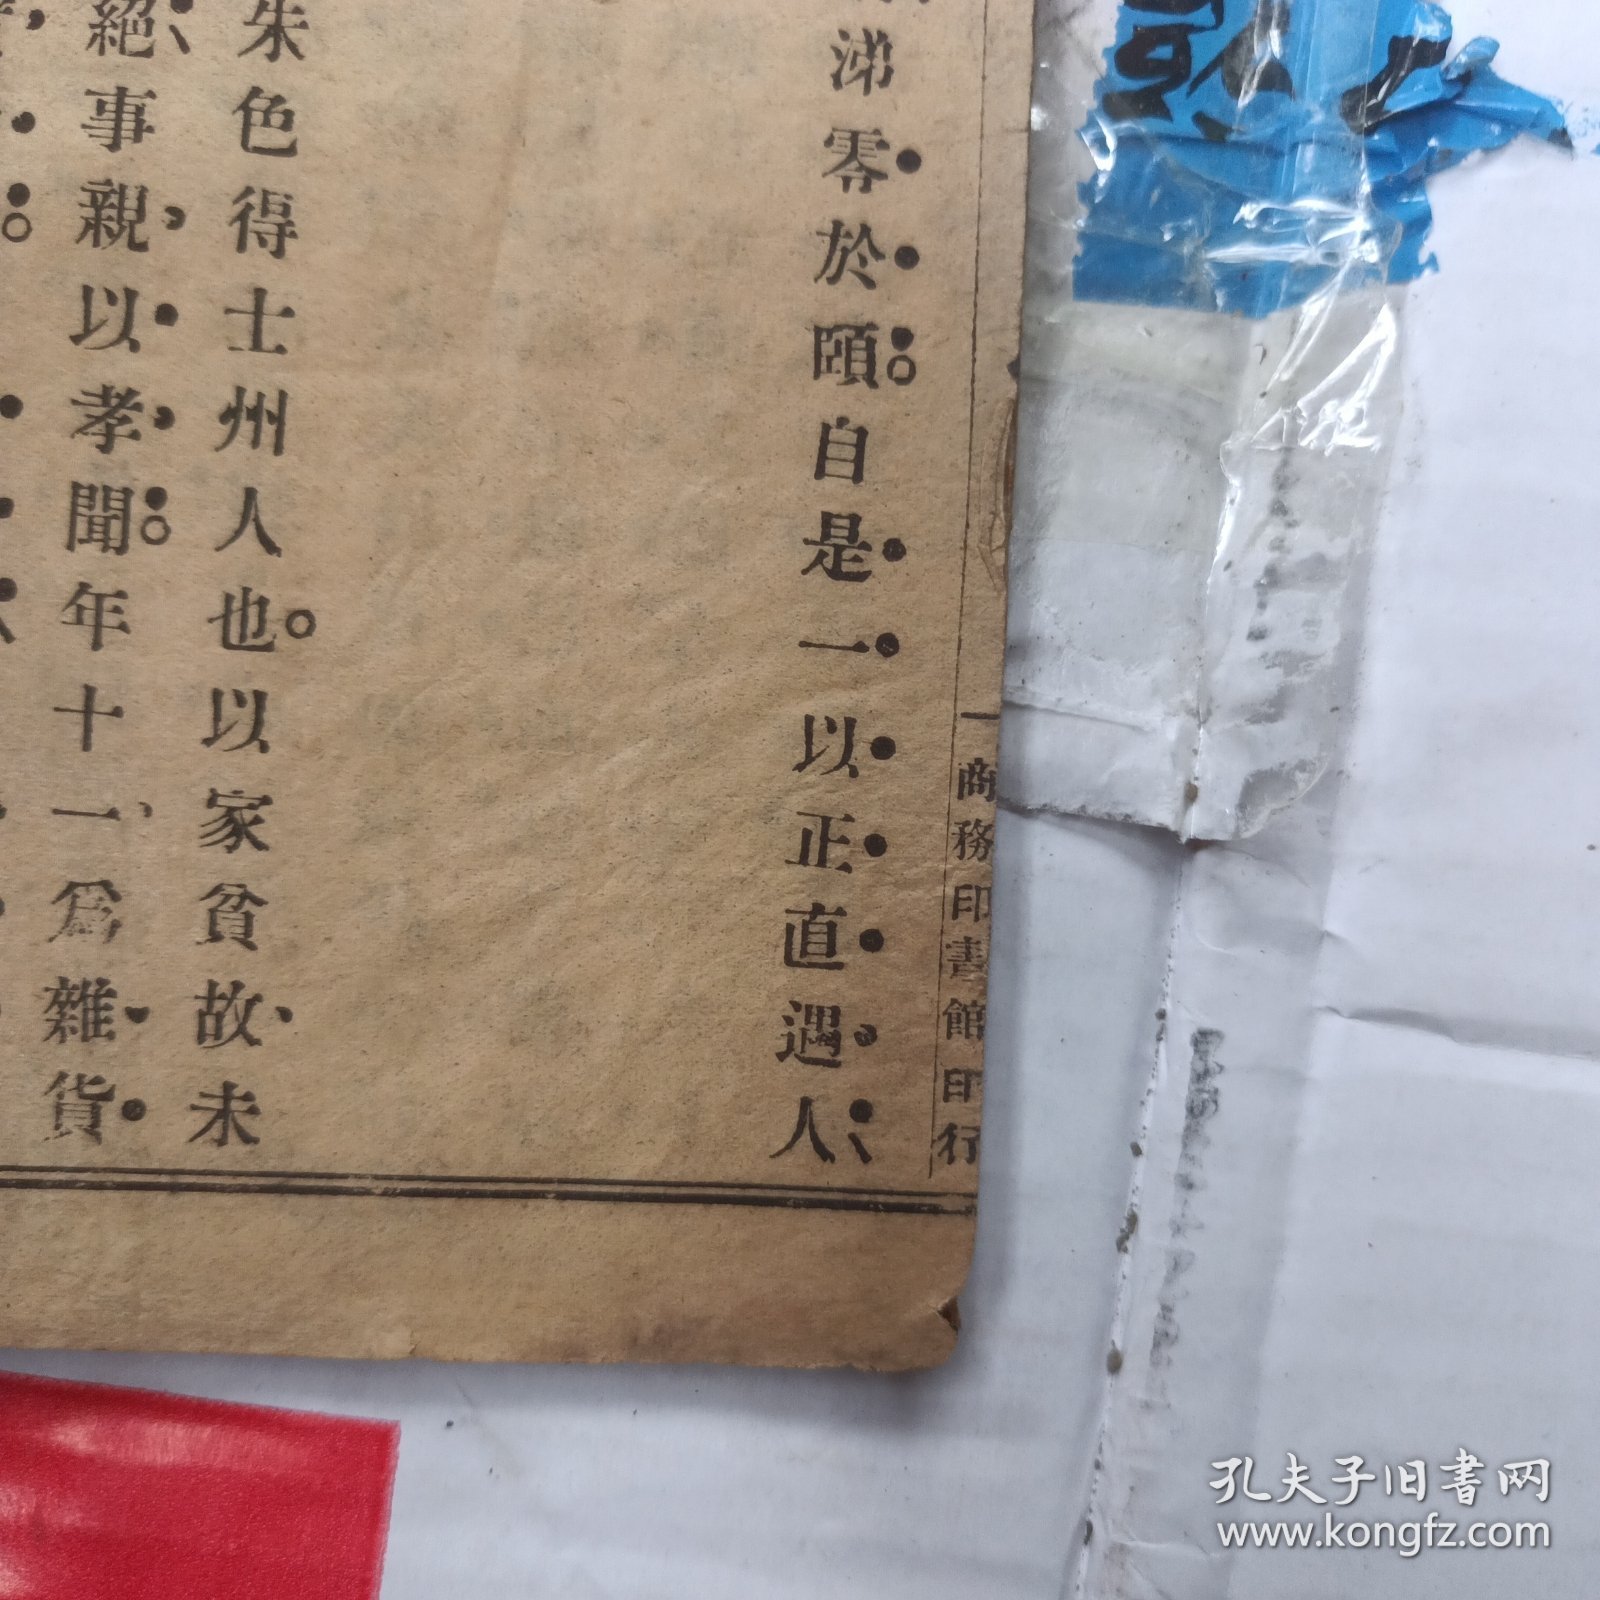 商務印書館印行
涕零於頤。自是一以正直遇人
朱色得士州人也。以家貧故、未
絕事親以孝聞。年十一、爲雜貨
孔夫子旧书网
www.kongfz.com